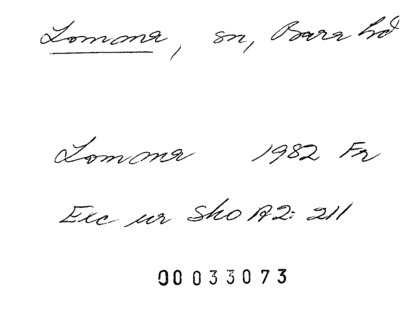 Lomma, sn, Bara hd
Lomma 1982 Fr
Exc ur Sho A2: 211
00033073